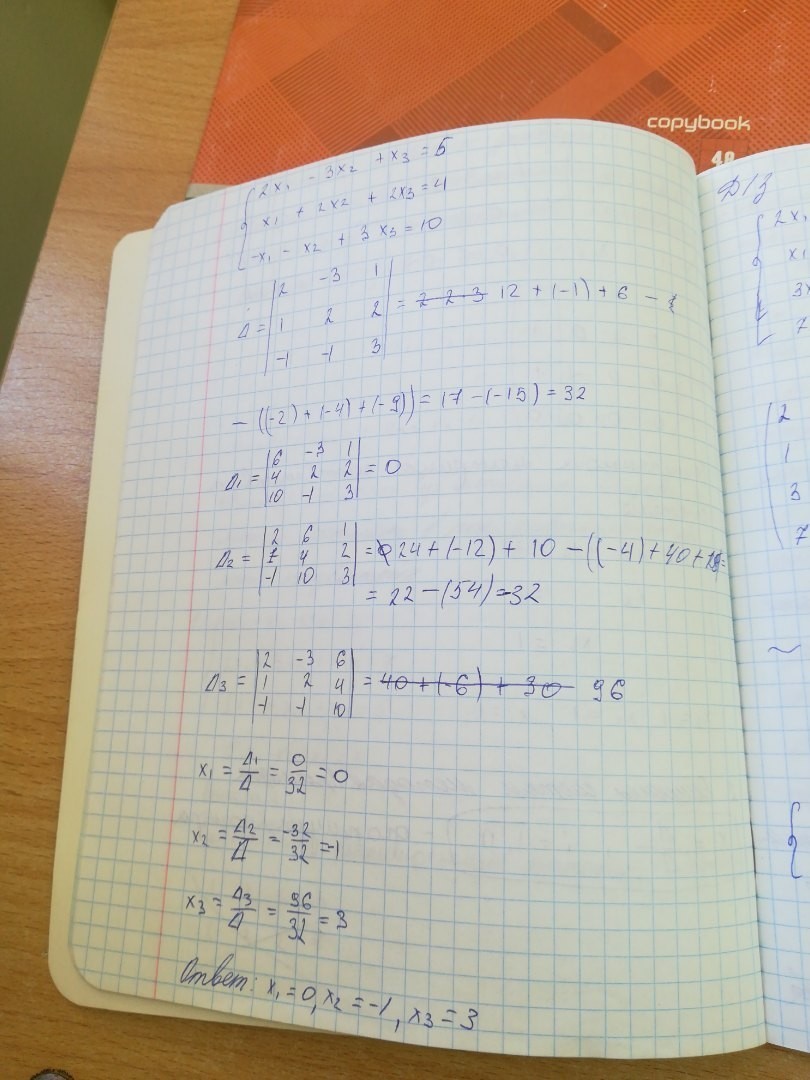 copybook
48
2x₁ - 3x₂ + x₃ = 5
x₁ + 2x₂ + 2x₃ = 4
-x₁ - x₂ + 3x₃ = 10
Δ = |2 -3 1|
|1 2 2| = 2·2·3 12 + (-1) + 6 -
|-1 -1 3|
- ((-2) + (-4) + (-9)) = 17 - (-15) = 32
Δ₁ = |6 -3 1|
|4 2 2| = 0
|10 -1 3|
Δ₂ = |2 6 1|
|1 4 2| = 24 + (-12) + 10 - ((-4) + 40 + 18) =
|-1 10 3|
= 22 - (54) = -32
Δ₃ = |2 -3 6|
|1 2 4| = 40 + (-6) + 30 96
|-1 -1 10|
x₁ = Δ₁/Δ = 0/32 = 0
x₂ = Δ₂/Δ = -32/32 = -1
x₃ = Δ₃/Δ = 96/32 = 3
Ответ: x₁ = 0, x₂ = -1, x₃ = 3
Д/З
2x₁
x₁
3x
7
2
1
3
7